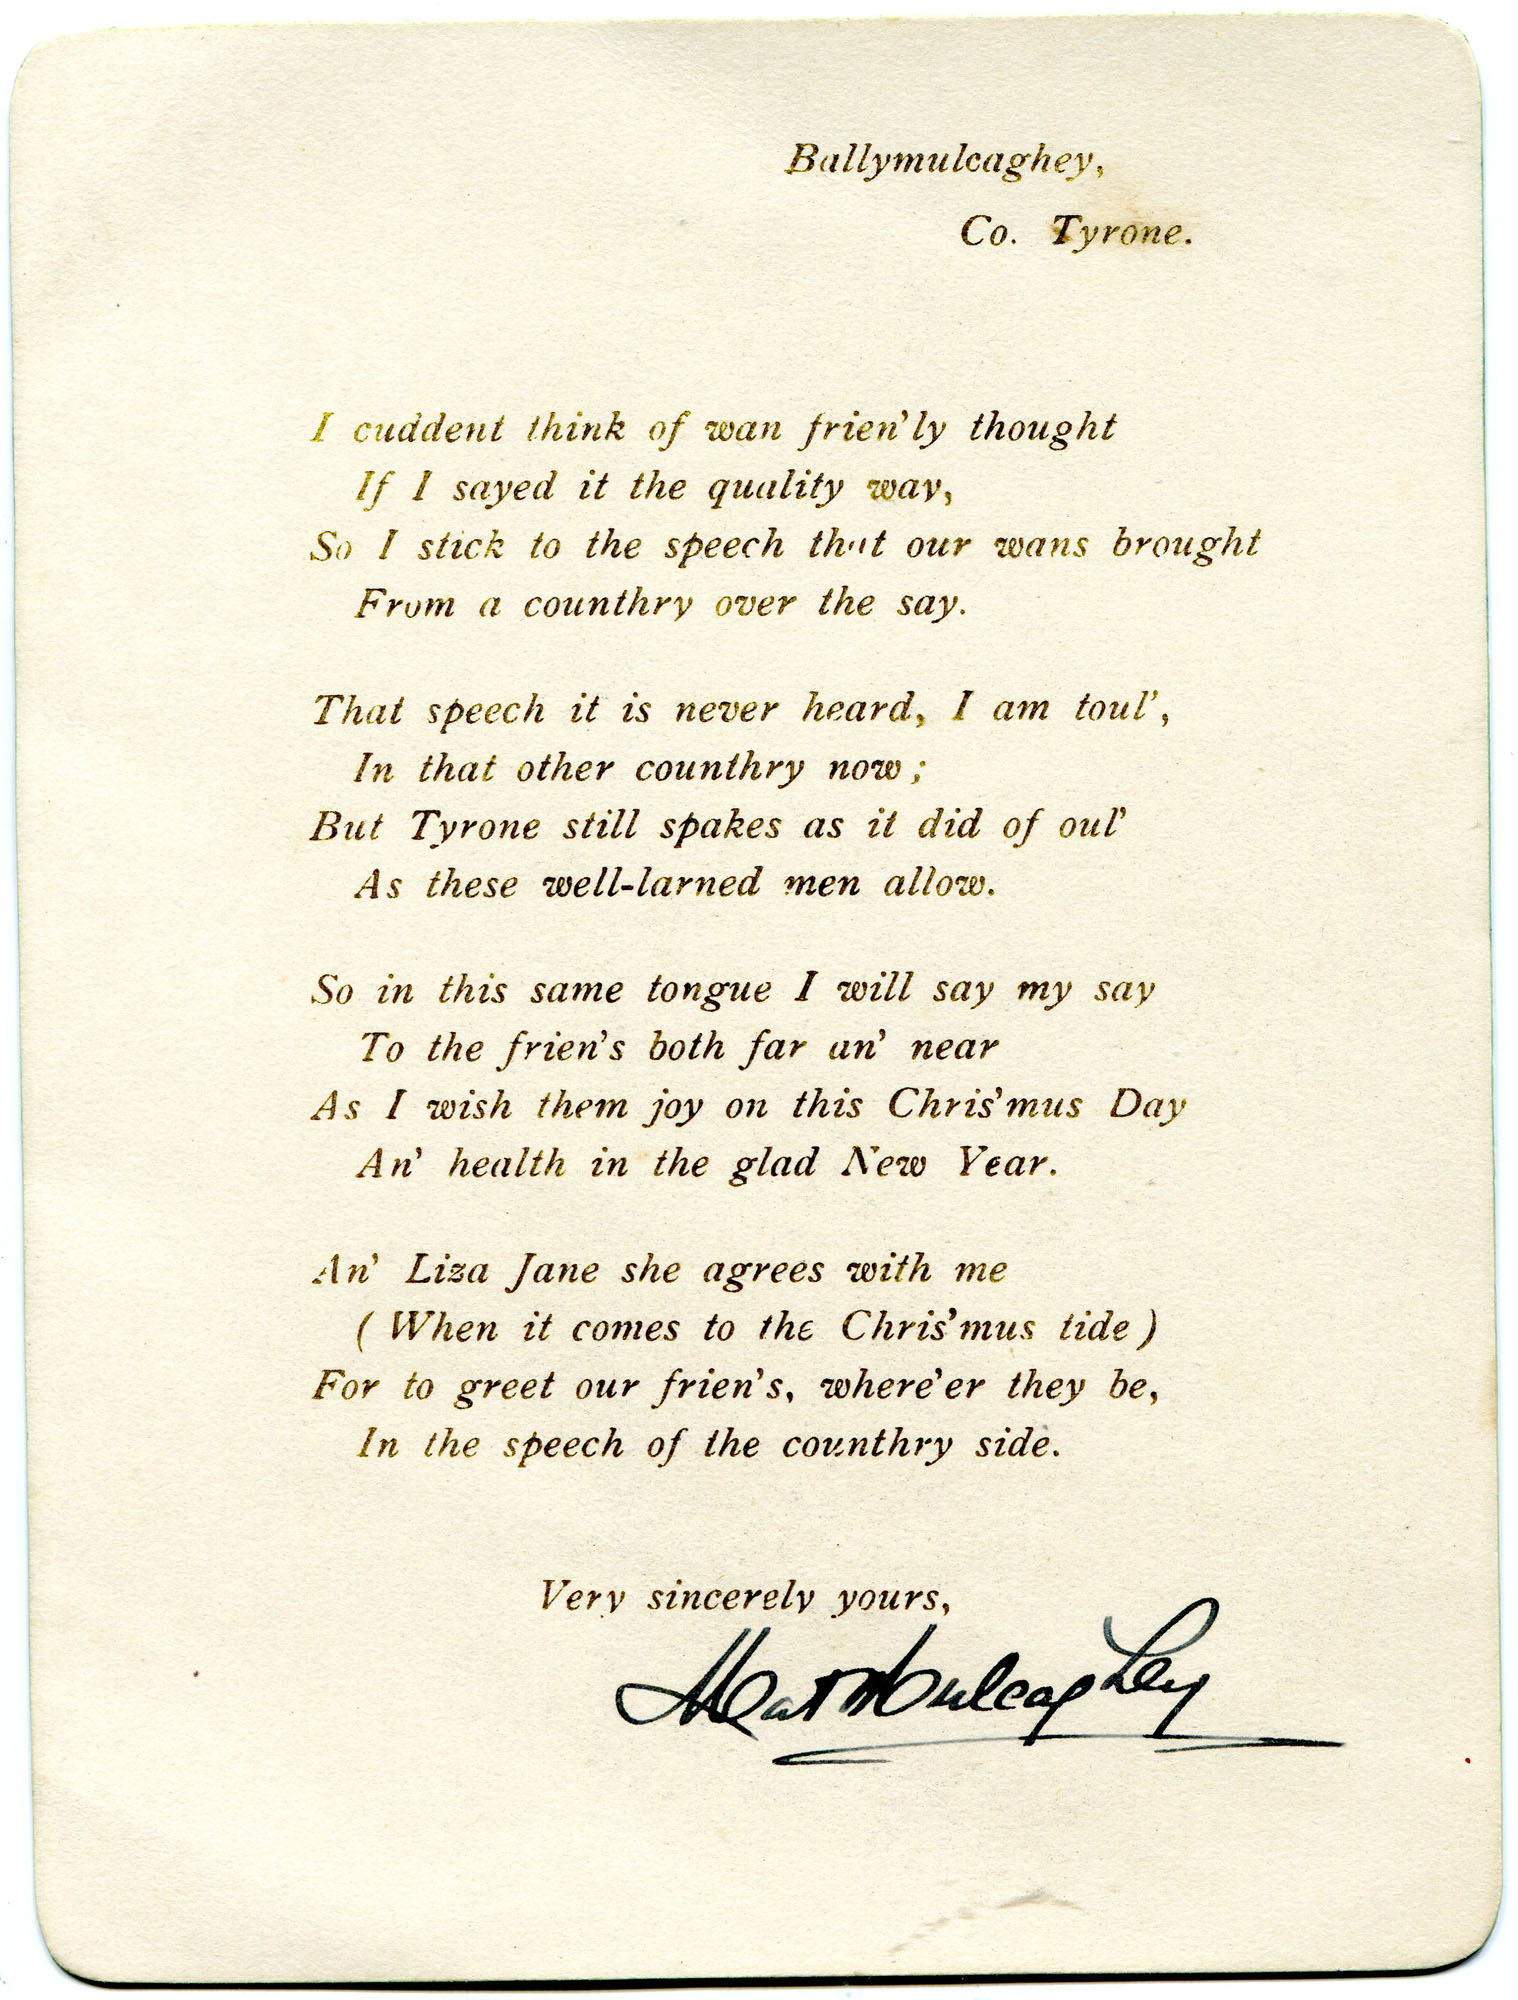 Ballymulcaghey,
Co. Tyrone.
I cuddent think of wan frien'ly thought
If I sayed it the quality way,
So I stick to the speech that our wans brought
From a counthry over the say.
That speech it is never heard, I am toul',
In that other counthry now ;
But Tyrone still spakes as it did of oul'
As these well-larned men allow.
So in this same tongue I will say my say
To the frien's both far an' near
As I wish them joy on this Chris'mus Day
An' health in the glad New Year.
An' Liza Jane she agrees with me
( When it comes to the Chris'mus tide )
For to greet our frien's, where'er they be,
In the speech of the counthry side.
Very sincerely yours,
Mat Mulcaghey